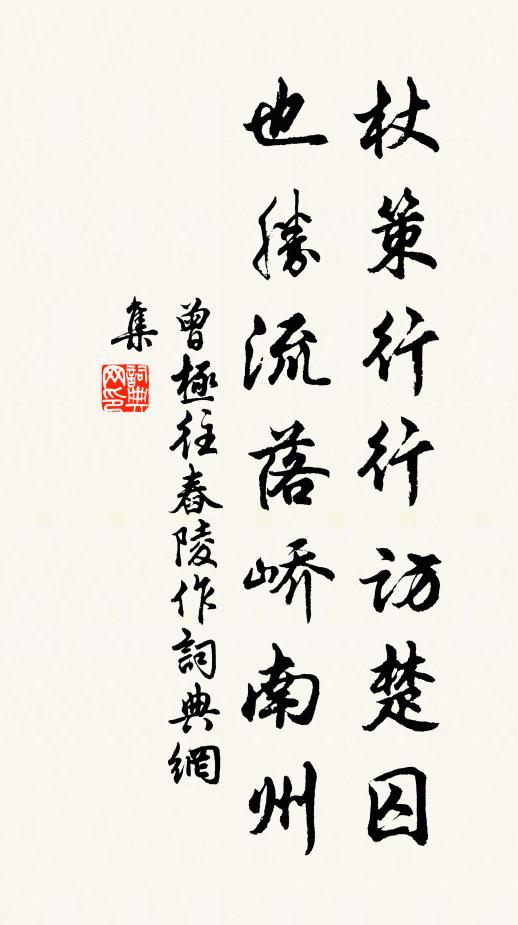 杖策行行访楚囚
也勝流落峤南州
曾極往舂陵作詞典網
集
詞典网印